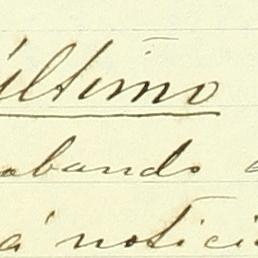 último
obando
á notici